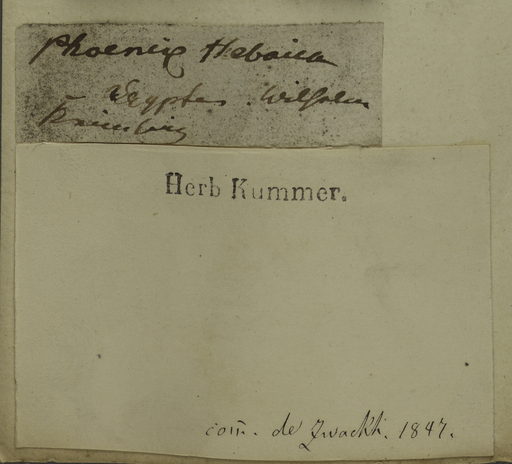 Phoenix thebaica
Egyptes. Wilhelm
Herb Kummer.
com̄. de Zwackh. 1847.